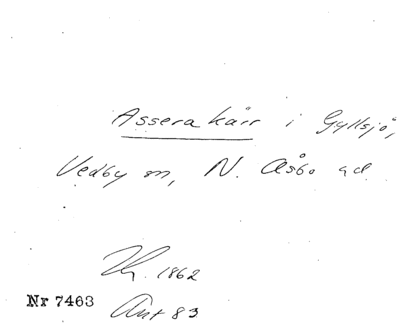 Assera kärr i Gyllsjö,
Vedby sn, N. Åsbo hd
1862
Nr 7463
Ant 83